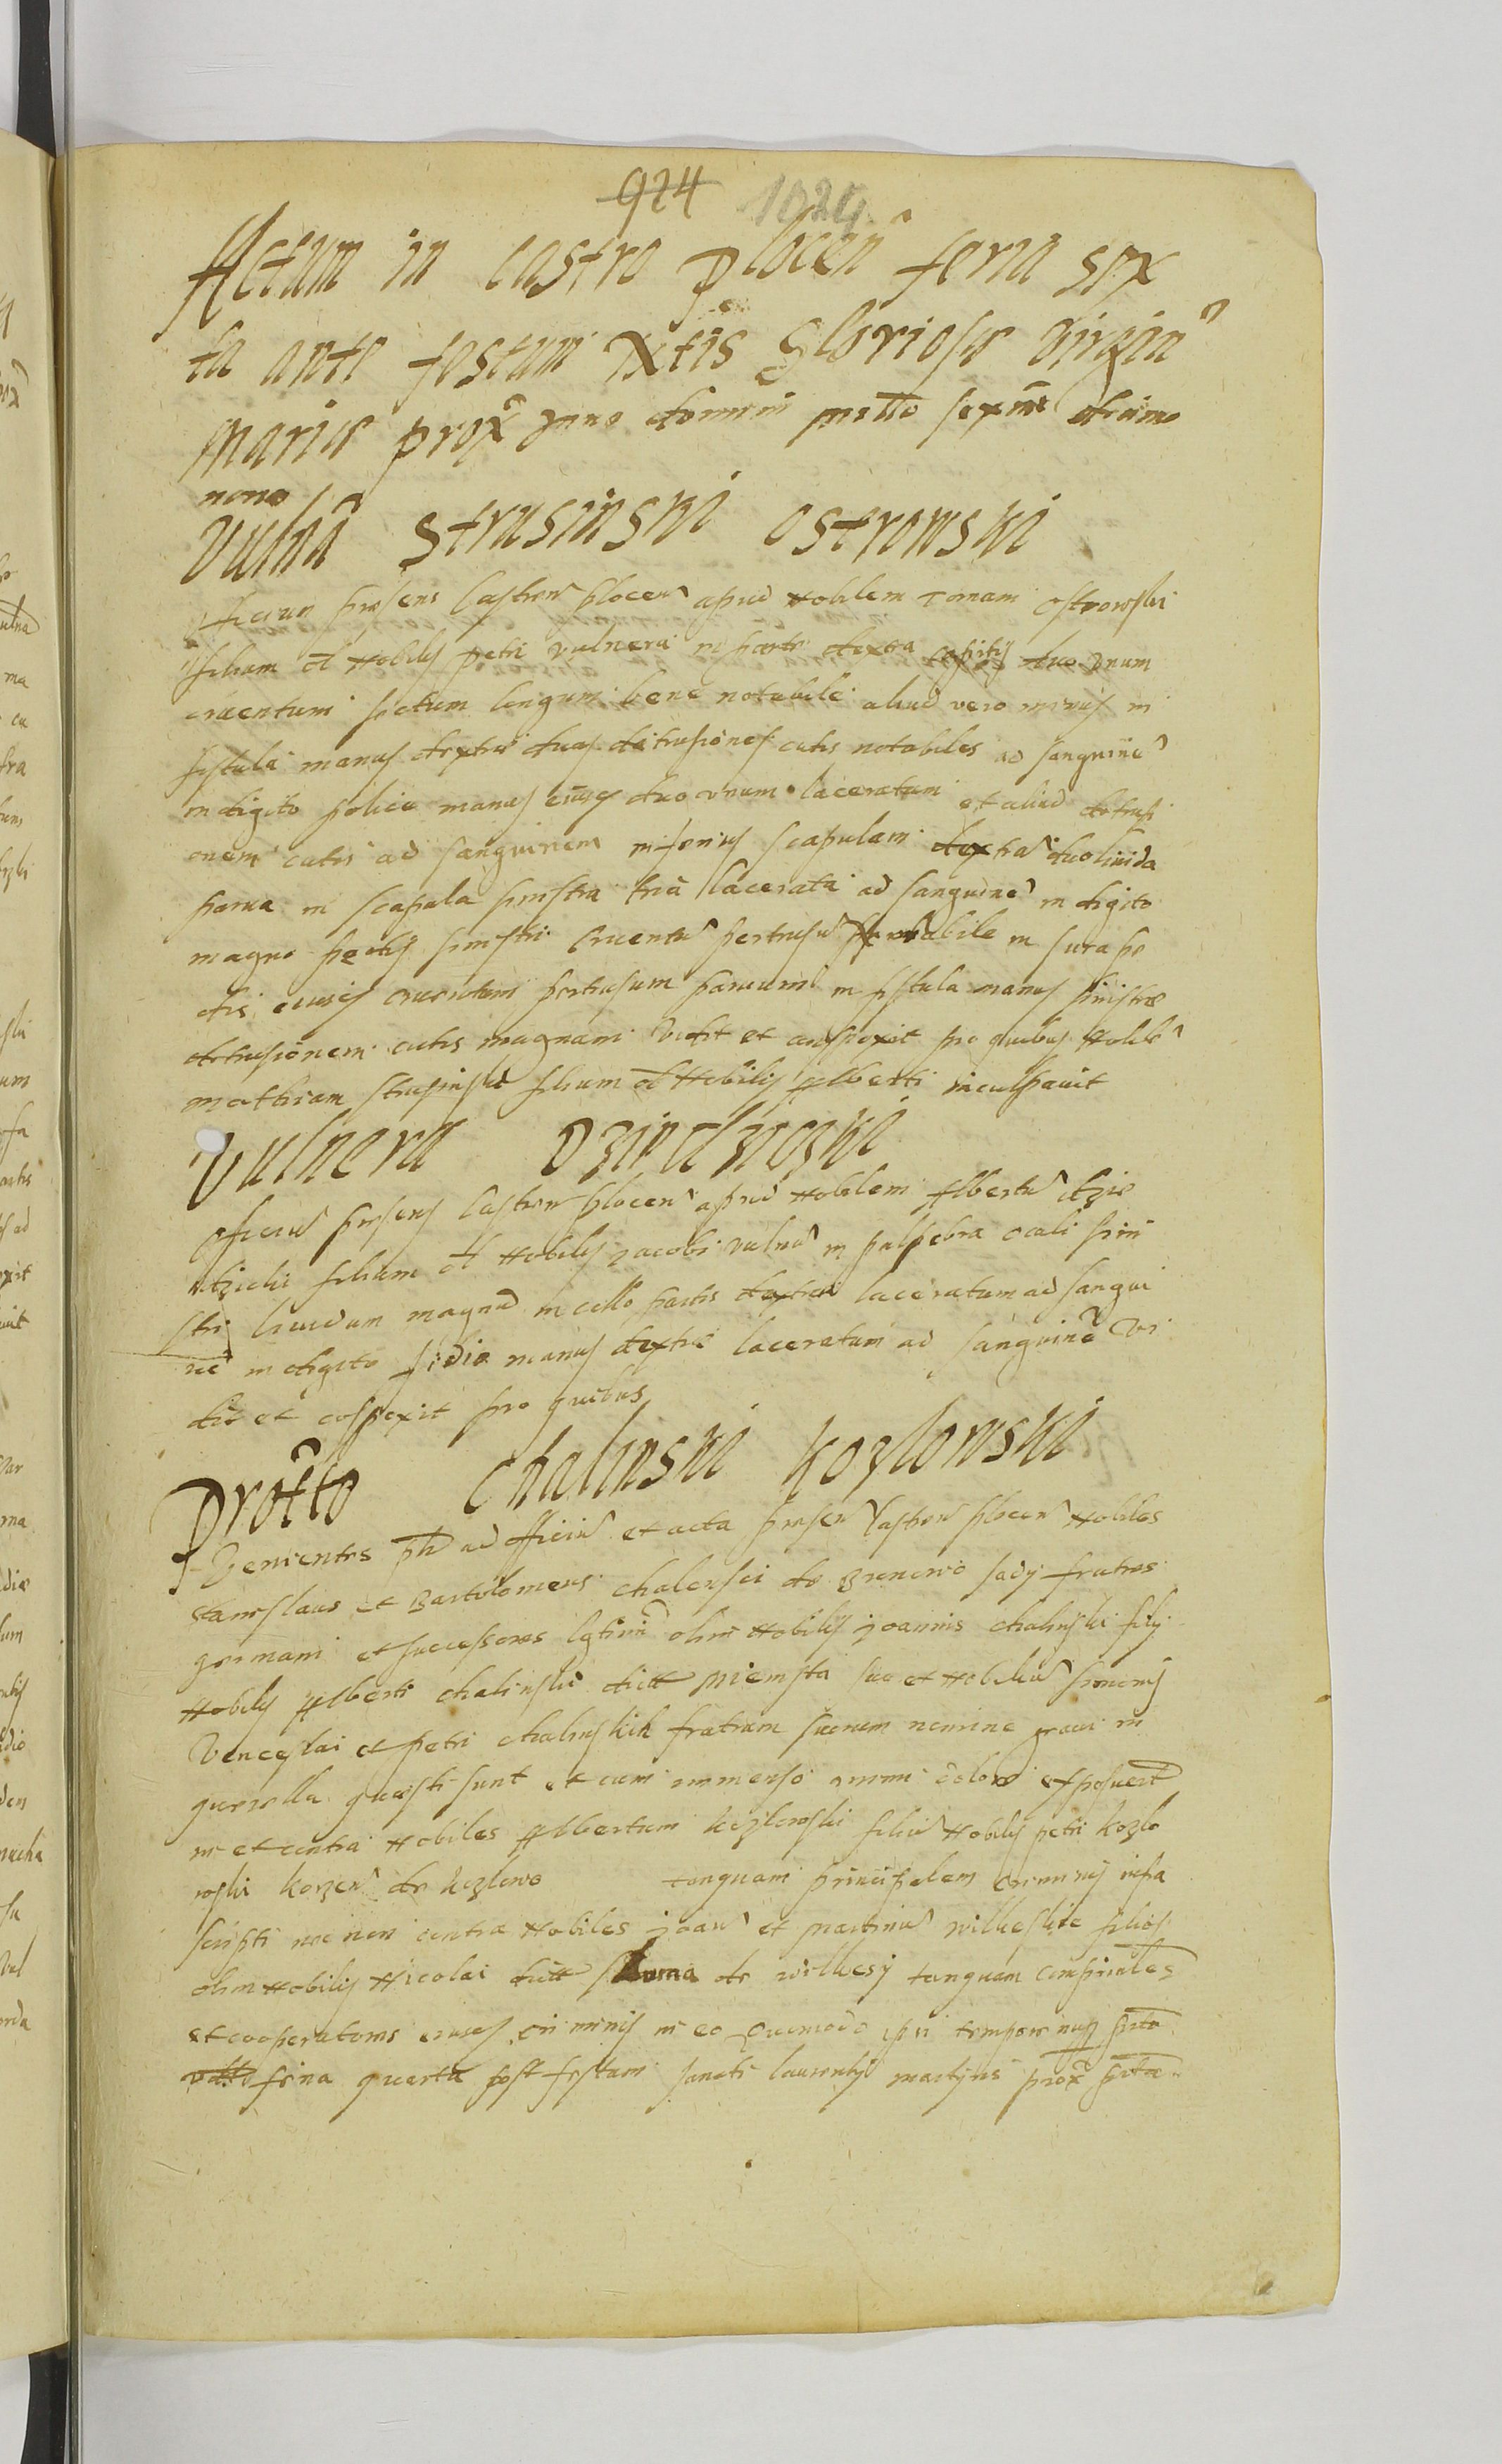 924 1024
Actum in castro plocen feria sex
ta ante festum Nxtis Gloriose Virgin
Marie prox Anno domini millo sexmo decimo
nono
Vulna Strusinski Ostrowski
Officium presens Castren plocen apud Nobilem Tomam Ostrowski
filium ol Nobilis petri vulnera in parte dextra capitis duo vnum
cruentum sectum longum bene notabile aliud vero minus in
fistula manus dextre duas detrusiones cutis notabiles ad sanguine
in digito police manus eiusq duo vnum laceratum et aliud detrusi
onem cutis ad sanguinem inferius scapulam dextra duo liuida
parua in scapula sinistra tria lacerata ad sanguine in digito
magno pedis sinistri Cruentu pertrusu notabile in sura pe
dis eiusq cruentum pertrusum paruum in fistula manus sinistre
detrusionem cutis magnam vidit et conspexit pro quibus Nobile
Mathiam Strusinski filium ol Nobilis Alberti inculpauit
Vulnera Dziedzicski
Officiu presens Castren plocen apud Nobilem Albertu dzie
dzicki filium ol Nobilis Jacobi vulna in palpebra oculi sini
stri liuidum magnu in collo partis dextra laceratum ad sangui
ne in digito manus dextre laceratum ad sanguine vi
dit et cospexit pro quibus
Protto Chalinski Kozlowski
Venientes ad officiu et acta presen Castren plocen Nobiles
Stanislaus et Bartolomeus chalensci de fratres
germani et successores lgtimi olim Nobilis Joannis chalinski filij
Nobilis Alberti chalinski dictt suo et Nobiliu
Venceslai et petri chalinskih fratrum suorum nomine graui in
querella questi sunt et cum immenso animi dolore exposuert
in et contra Nobiles Albertum kozlowski filiu Nobilis petri kozlo
wski korzen de kozlowo tanquam principalem criminis infra
scripti nec non contra Nobiles Joan et Martinu wilkeskie filios
olim Nobilis Nicolai dictt de wilkesy tanquam compriales
et cooperatores eiusq criminis in eo Quomodo ipsi tempore nup prto
feria quarta post festum sancti laurentij martyris prox prta